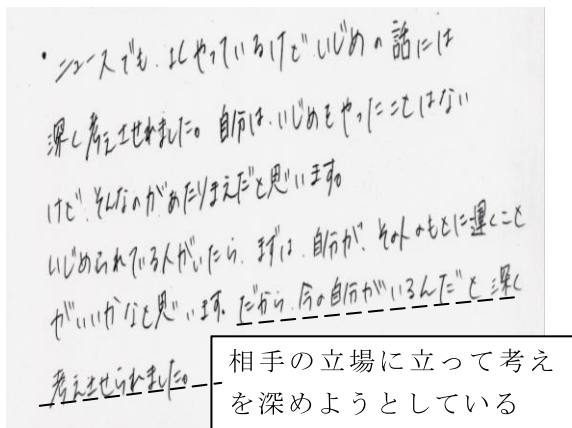 ・ニュースでも、よくやっているけど、いじめの話には
深く考えさせれました。自分は、いじめをやったことはない
けど、そんなのがあたりまえだと思います。
いじめられている人がいたら、まずは、自分が、その人のもとに運くこと
がいいかなと思います。だから、今の自分がいるんだと深く
考えさせられました。
相手の立場に立って考え
を深めようとしている